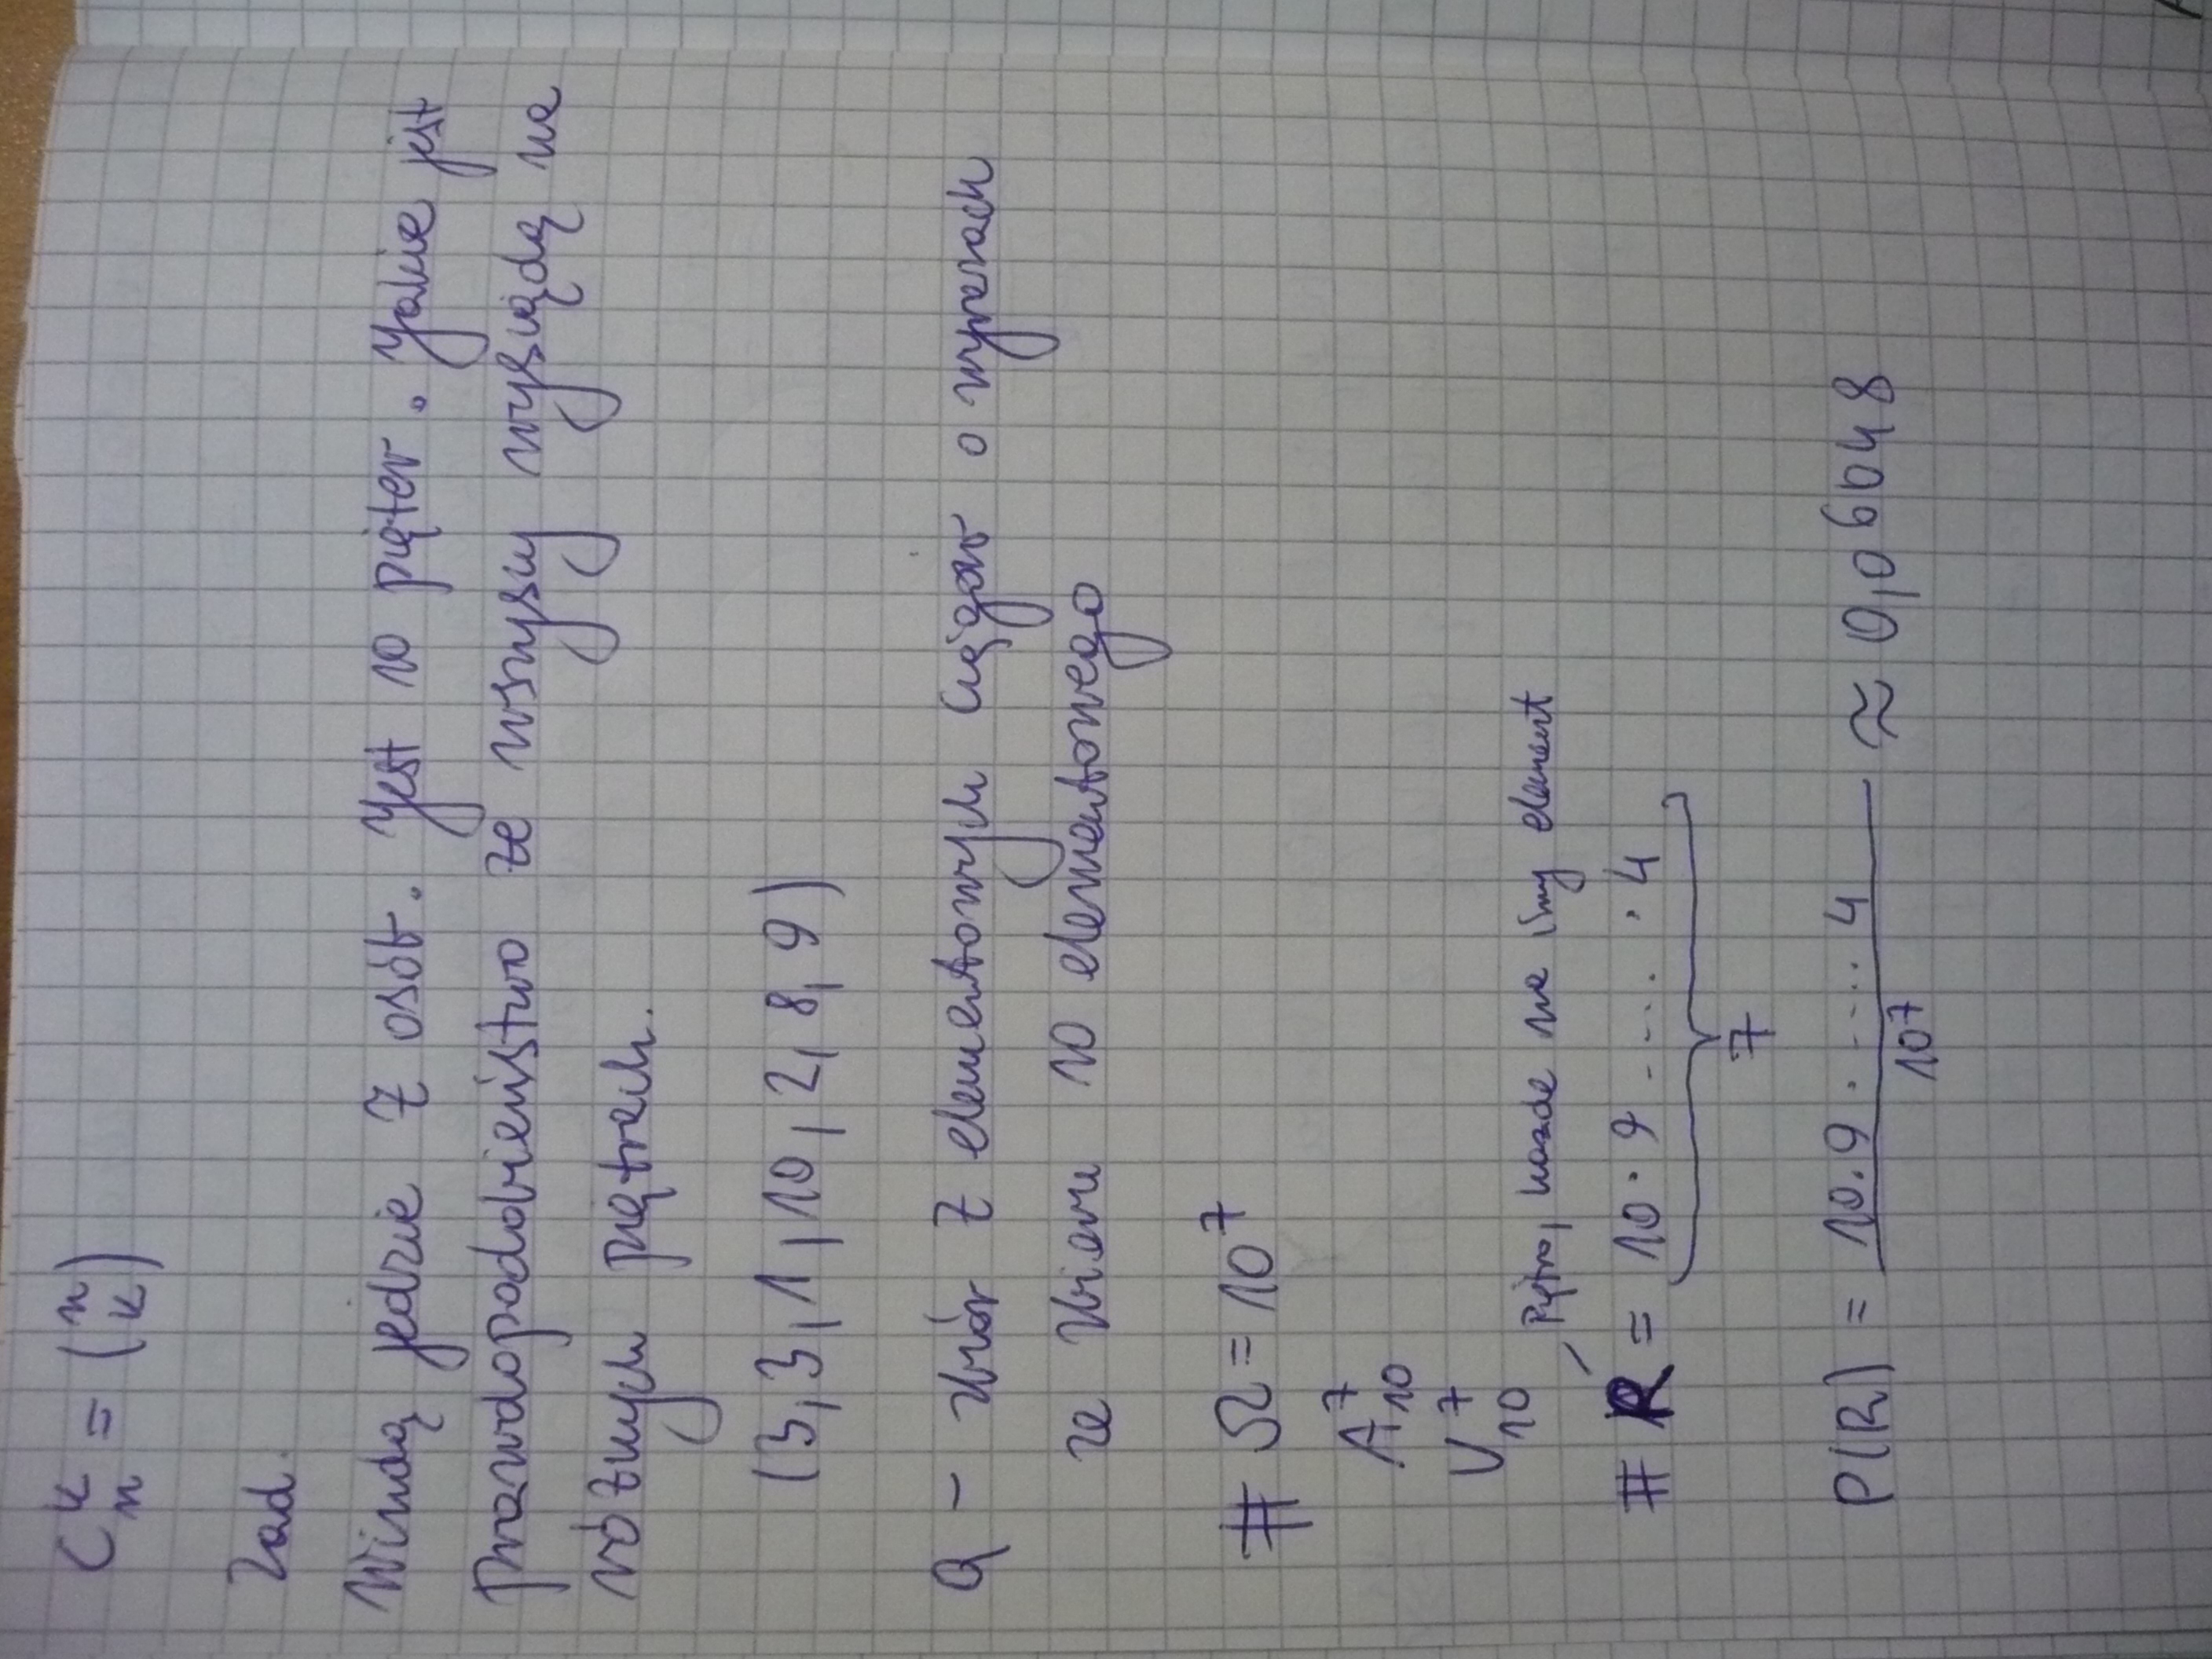 C_n^k = (n k)
Zad.
Windą jedzie 7 osób. Jest 10 pięter. Jakie jest
prawdopodobieństwo że wszyscy wysiędą na
różnych piętrach.
(3, 3, 1, 10, 2, 8, 9)
Ω - zbiór 7 elementowych ciągów o wyrazach
ze zbioru 10 elementowego
# Ω = 10^7
A_10^7
V_10^7
Piętro, każde ma inny element
# R = 10 · 9 · ... · 4
7
P(R) = 10 · 9 · ... · 4 / 10^7 ≈ 0,06048